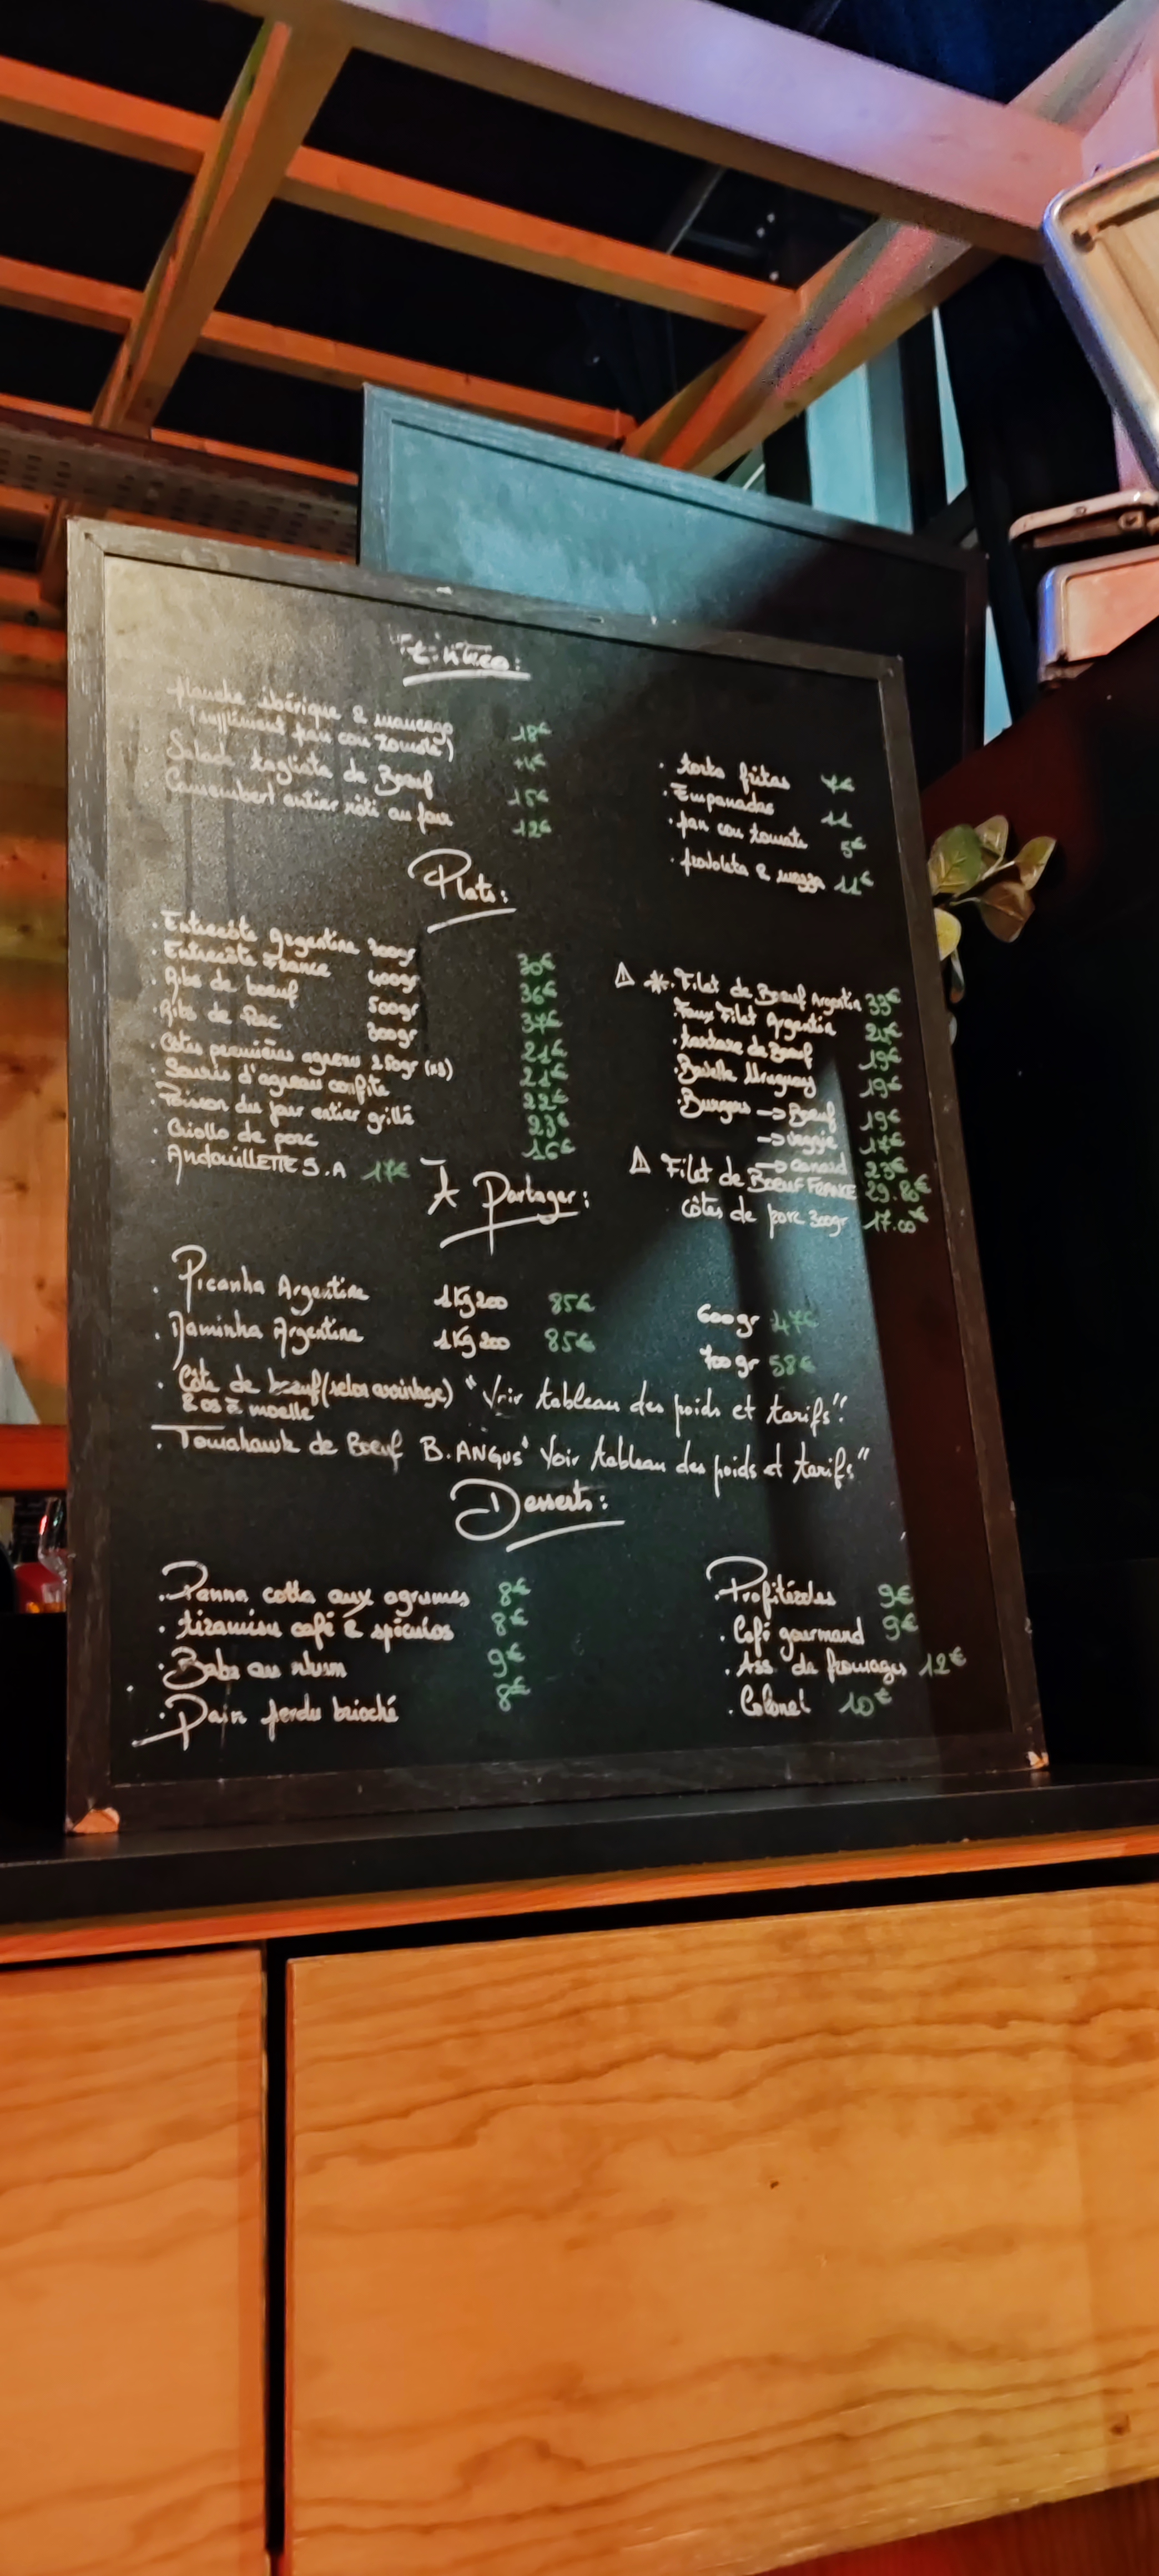 Entrées:
planche ibérique & manchego 18€
(supplément pan con tomate) +4€
Salade tagliata de Boeuf 15€
Camembert entier rôti au four 12€
. torta fritas
. Empanadas 11
. pan con tomate 5€
. provoleta & 11€
Plats:
. Entrecôte Argentine 300gr 30€
. Entrecôte France 400gr 36€
. Ribs de boeuf 500gr 37€
. Ribs de Porc 300gr 21€
. Côtes premières agneau 250gr (x3) 21€
. Souris d'agneau confite 22€
. Poisson du jour entier grillé 23€
. Criollo de porc 16€
. AndouillETTE S.A 17€
⚠ *. Filet de Boeuf Argentin 33€
. Faux Filet Argentin
. tartare de Boeuf 19€
. Bavette Uruguay 19€
. Burgers → Boeuf 19€
→ veggie 17€
→ canard 23€
⚠ Filet de BOEUF FRANCE 29.80€
côtes de porc 300gr 17.00€
À Partager:
. Picanha Argentine 1Kg200 85€ 600gr 47€
. Maminha Argentine 1Kg200 85€ 700gr 58€
. Côte de boeuf (selon arrivage) "Voir tableau des poids et tarifs".
& os à moelle
. Tomahawk de Boeuf B.ANGUS "Voir tableau des poids et tarifs"
Desserts:
. Panna cotta aux agrumes 8€
. tiramisu café & spéculos 8€
. Baba au rhum 9€
. Pain perdu brioché 8€
. Profitéroles 9€
. Café gourmand 9€
. Ass de fromages 12€
. Colonel 10€